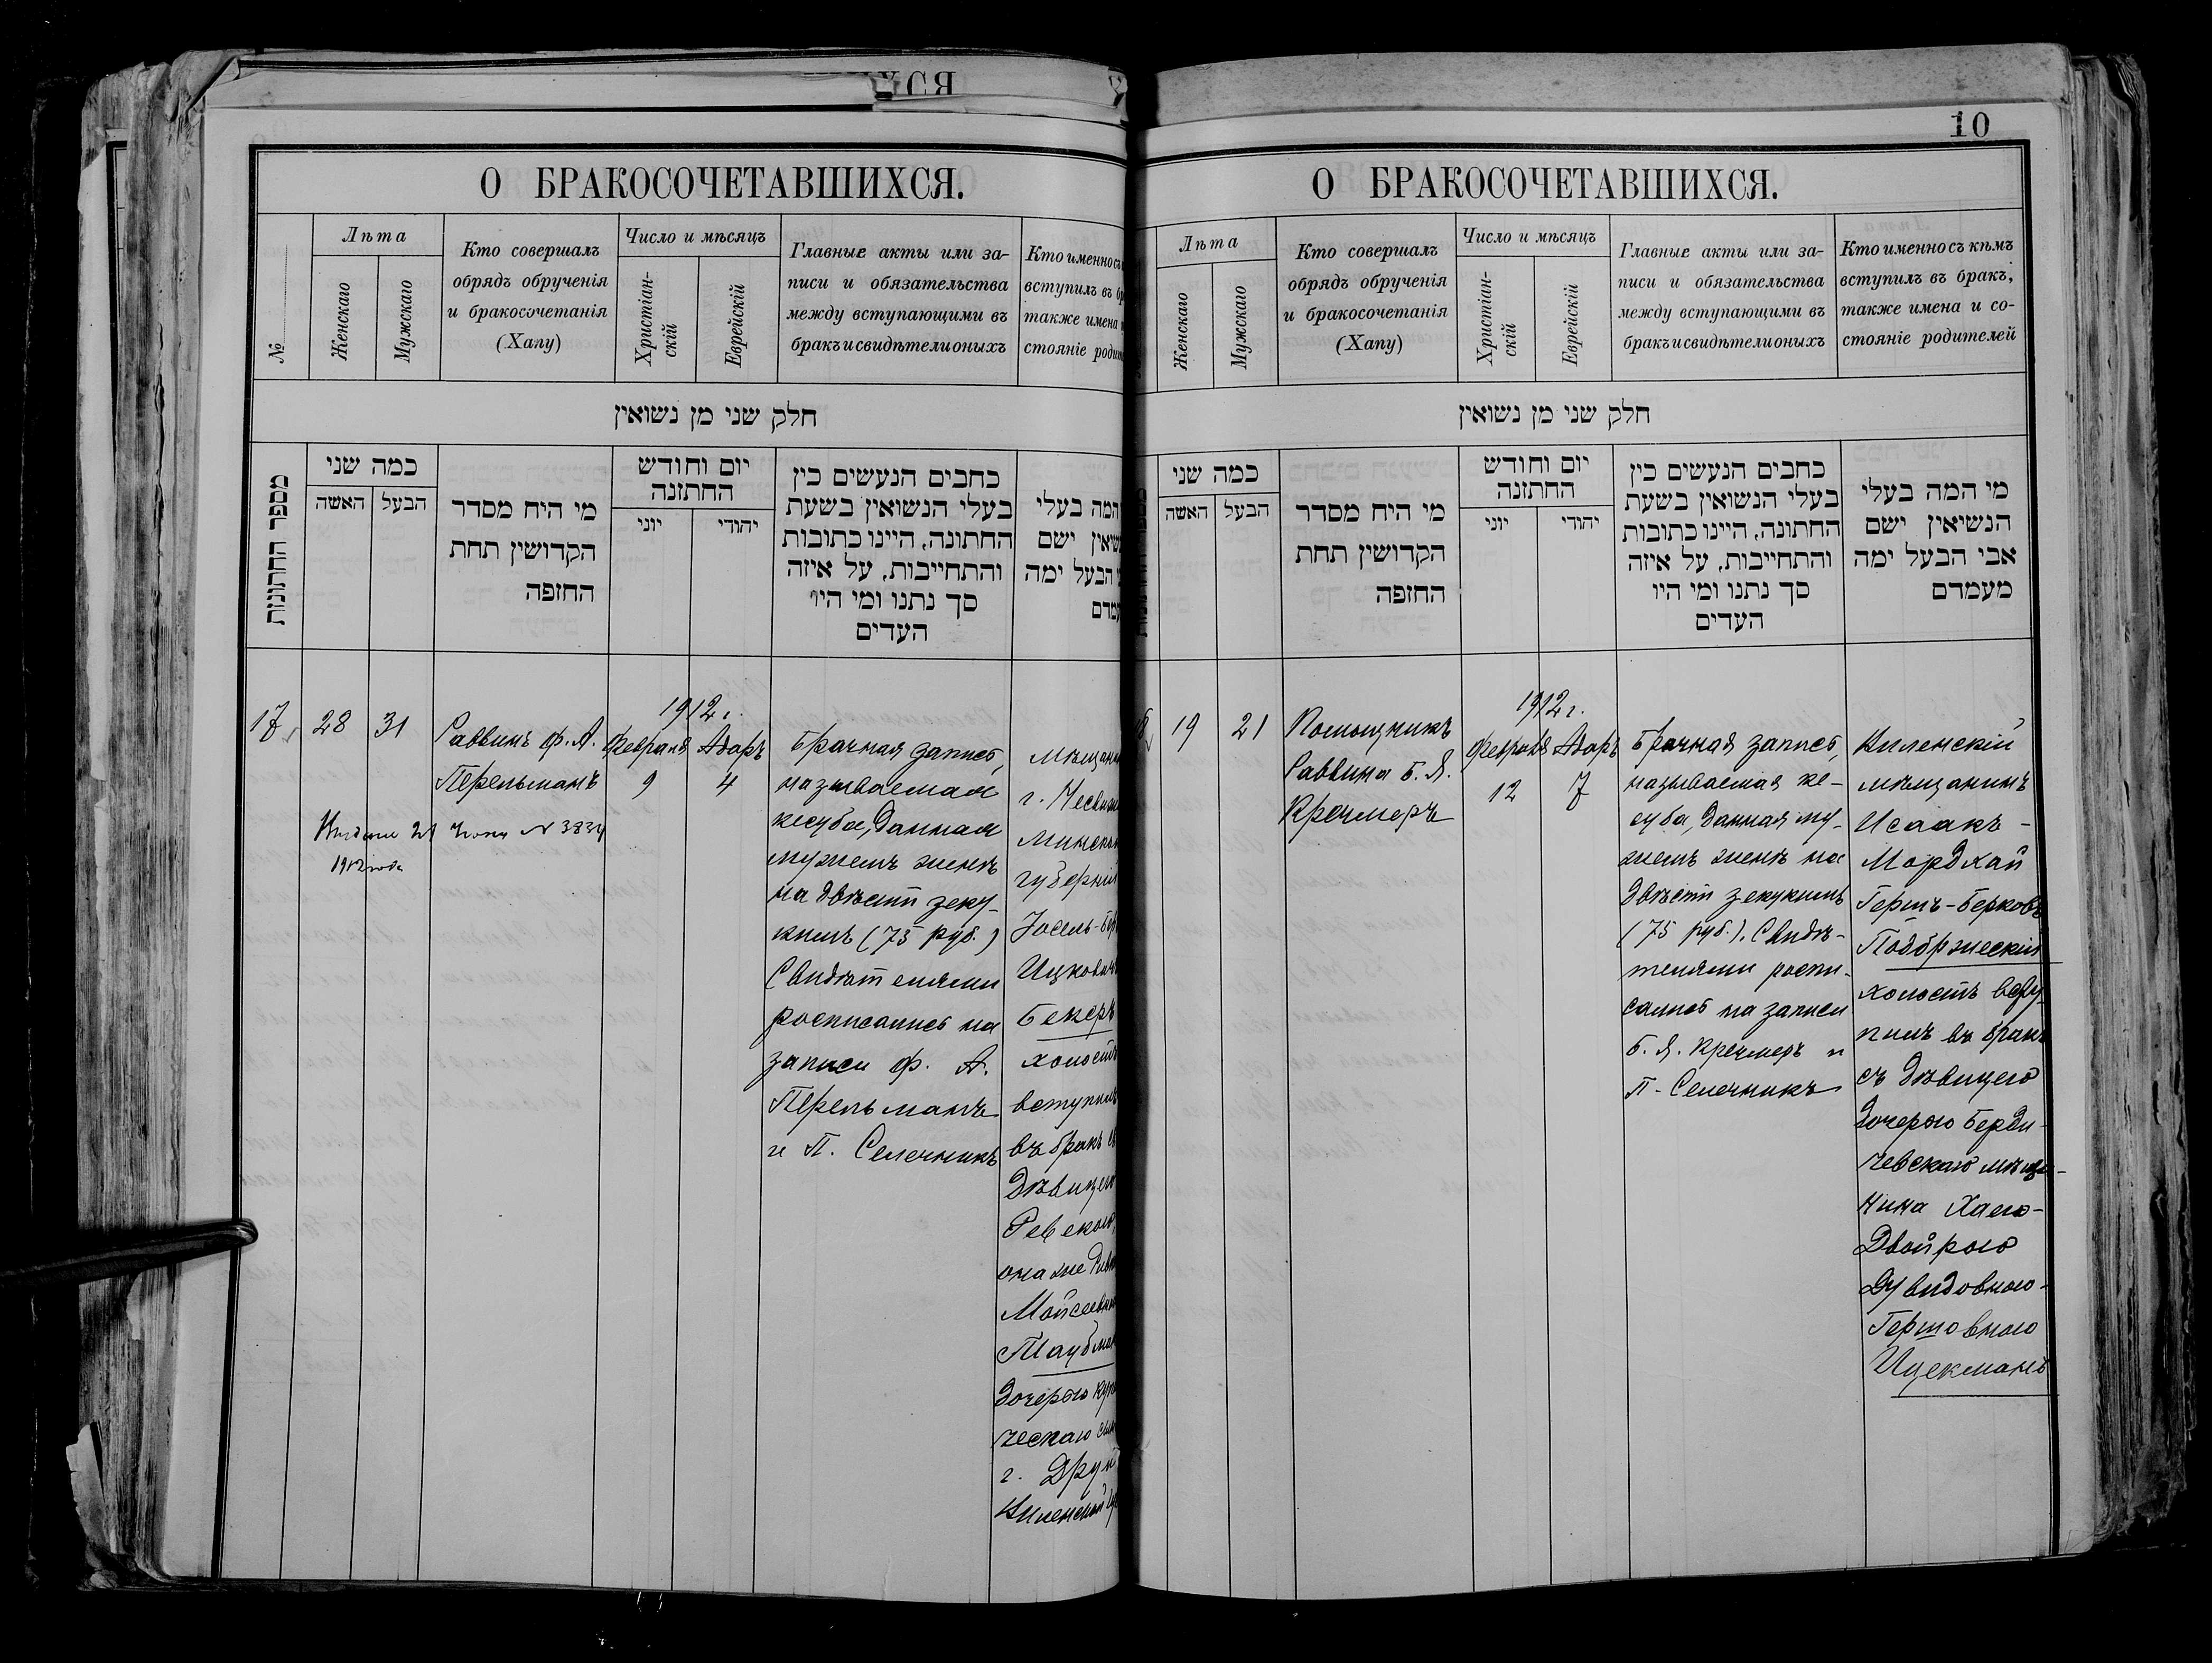 10
О БРАКОСОЧЕТАВШИХСЯ.
№
Лѣта
Женскаго
Мужскаго
Кто совершалъ
обрядъ обрученія
и бракосочетанія
(Хапу)
Число и мѣсяцъ
Христіан-
скій
Еврейскій
Главные акты или за-
писи и обязательства
между вступающими въ
бракъ и свидѣтели оныхъ
Кто именно съ
вступилъ въ
также имена
стояніе
חלק שני מן נשואין
מספר החתונות
כמה שני
האשה
הבעל
מי היח מסדר
הקדושין תחת
החזפה
יום וחודש
החתזנה
יוני
יהודי
כחבים הנעשים כין
בעלי הנשואין בשעת
החתונה, היינו כתובות
והתחייבות, על איזה
סך נתנו ומי היו
העדים
המה בעלי
ישם
הבעל ימה
17
28
31
Раввинъ Ф. А.
Перельманъ
1912 г.
Февраля
9
Адаръ
4
N 3834
Брачная запись,
называемая
кесуба, данная
мужемъ женѣ
на двѣсти зеку-
кимъ (75 руб.)
Свидѣтелями
росписались на
записи Ф. А.
Перельманъ
и П. Селечникъ
г.
губерніи
Бекеръ
холостъ
вступилъ
въ бракъ съ
дѣвицею
она же
дочерью
г.
О БРАКОСОЧЕТАВШИХСЯ.
Лѣта
Женскаго
Мужскаго
Кто совершалъ
обрядъ обрученія
и бракосочетанія
(Хапу)
Число и мѣсяцъ
Христіан-
скій
Еврейскій
Главные акты или за-
писи и обязательства
между вступающими въ
бракъ и свидѣтели оныхъ
Кто именно съ кѣмъ
вступилъ въ бракъ,
также имена и со-
стояніе родителей
חלק שני מן נשואין
כמה שני
האשה
הבעל
מי היח מסדר
הקדושין תחת
החזפה
יום וחודש
החתזנה
יוני
יהודי
כחבים הנעשים כין
בעלי הנשואין בשעת
החתונה, היינו כתובות
והתחייבות, על איזה
סך נתנו ומי היו
העדים
מי המה בעלי
הנשיאין ישם
אבי הבעל ימה
מעמדם
19
21
Помощникъ
Раввина Б. Я.
Кречмеръ
1912 г.
Февраля
12
Адаръ
7
Брачная запись,
называемая ке-
суба, данная му-
жемъ женѣ на
двѣсти зекукимъ
(75 руб.). Свидѣ-
телями роспи-
сались на записи
Б. Я. Кречмеръ и
П. Селечникъ
Виленскій
мѣщанинъ
Исаакъ-
Мордхай
Гершъ-Берковъ
Подбржескій
холостъ всту-
пилъ въ бракъ
съ дѣвицею
дочерью Берди-
чевскаго мѣща-
нина Хаею-
Двойрою
Гершовною
Ицекманъ